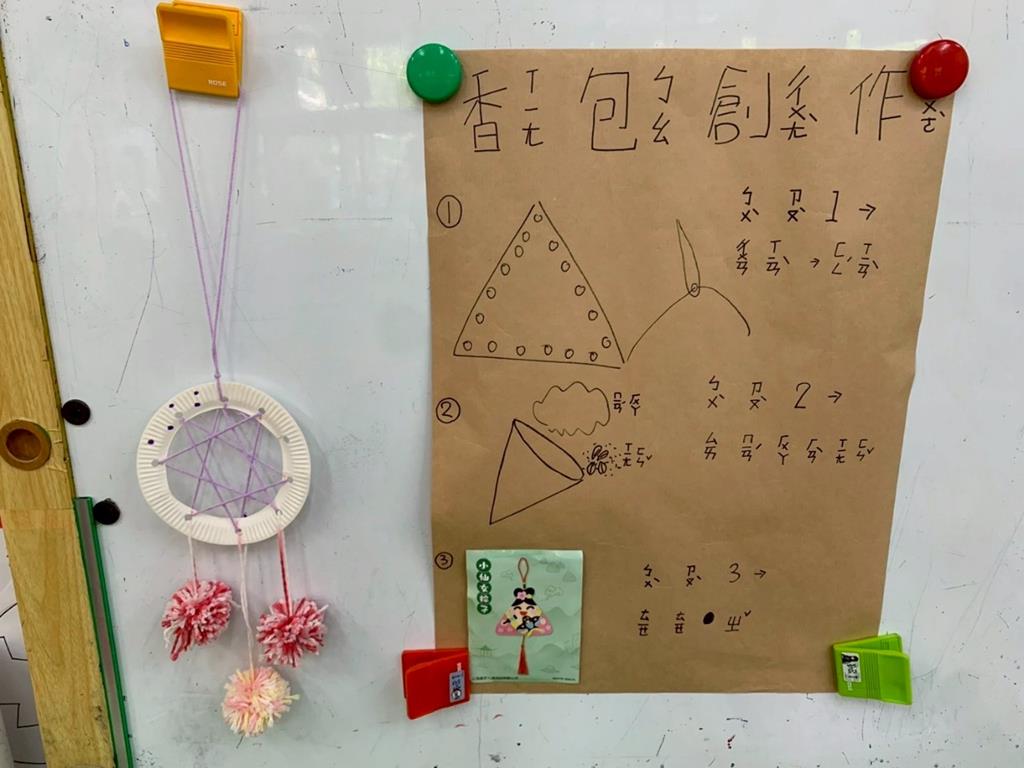 ROSE
香ㄒㄧㄤ 包ㄅㄠ 創ㄔㄨㄤˋ 作ㄗㄨㄛˋ
①
ㄅㄨˋ ㄗㄡˋ 1 →
ㄔㄨㄢ ㄒㄧㄢˋ → ㄈㄥˊ ㄒㄧㄢˋ
②
ㄇㄧㄢˊ ㄏㄨㄚ
ㄒㄧㄤ ㄈㄣˇ
ㄅㄨˋ ㄗㄡˋ 2 →
ㄙㄞ ㄇㄧㄢˊ ㄏㄨㄚ ㄏㄢˋ ㄒㄧㄤ ㄈㄣˇ
③
小仙女粽子
ㄅㄨˋ ㄗㄡˋ 3 →
ㄊㄧㄝ ㄊㄧㄝ ● ㄓˇ